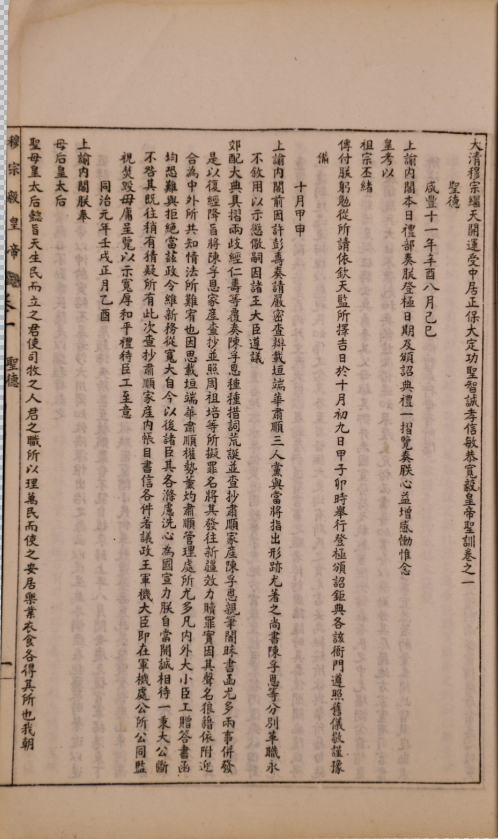 大清穆宗繼天開運受中居正保大定功聖智誠孝信敏恭寬毅皇帝聖訓卷之一
聖德
咸豐十一年辛酉八月己巳
上諭內閣本日禮部奏朕登極日期及頒詔典禮一摺覽奏朕心益增感慟惟念
皇考以
祖宗丕緒
傳付朕躬勉從所請依欽天監所擇吉日於十月初九日甲子卯時舉行登極頒詔鉅典各該衙門遵照舊儀敬謹豫
備
十月甲申
上諭內閣前因許彭壽奏請嚴密查辦載垣端華肅順三人黨與當將指出形跡尤著之尚書陳孚恩等分別革職永
不敘用以示懲儆嗣因諸王大臣遵議
郊配大典具摺兩歧經仁壽等覆奏陳孚恩種種措詞荒誕並查抄肅順家產陳孚恩親筆闇昧書函尤多兩事併發
是以復經降旨將陳孚恩家產查抄並照周祖培等所擬罪名將其發往新疆效力贖罪實因其聲名狼藉依附逆
合為中外所共知情法所難宥也因思載垣端華肅順權勢薰灼肅順管理處所尤多凡內外大小臣工贈答書函
均恐難與拒絕當茲政令維新務從寬大自今以後諸臣其各滌慮洗心為國宣力朕自當開誠相待一秉大公斷
不咎其既往稍有猜疑所有此次查抄肅順家產內帳目書信各件著議政王軍機大臣即在軍機處公所公同監
視焚毀毋庸呈覽以示寬厚和平禮待臣工至意
同治元年壬戌正月乙酉
上諭內閣朕奉
母后皇太后
聖母皇太后懿旨天生民而立之君使司牧之人君之職所以理萬民而使之安居樂業衣食各得其所也我朝
穆宗毅皇帝
卷一 聖德
一